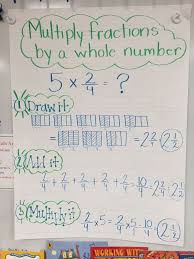 Multiply fractions
by a whole number
5 × 2/4 = ?
1 Draw it
= 2 2/4 2 1/2
2 Add it
2/4 + 2/4 + 2/4 + 2/4 + 2/4 = 10/4 = 2 2/4 = 2 1/2
3 Multiply it
2/4 × 5 = 2/4 × 5/1 = 10/4 2 1/2
WORKING WITH